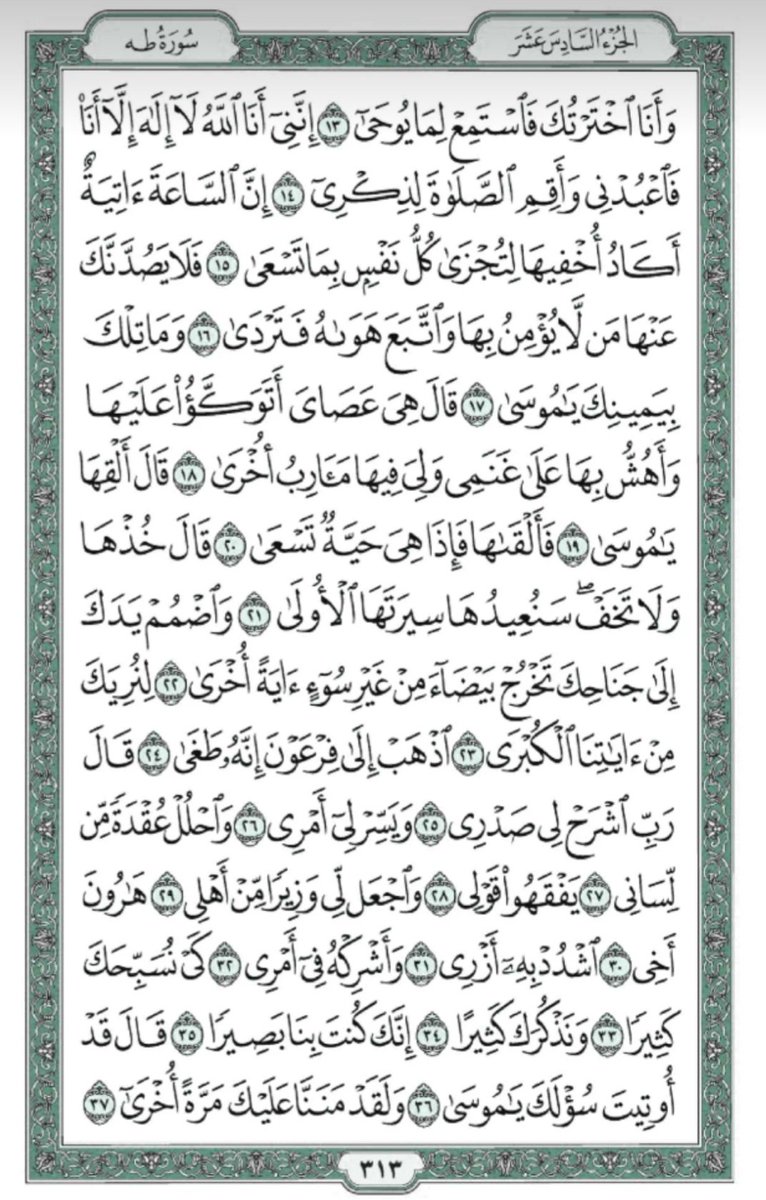 الجُزْءُ السَّادِسَ عَشَرَ
سُورَةُ طه
وَأَنَا ٱخۡتَرۡتُكَ فَٱسۡتَمِعۡ لِمَا يُوحَىٰٓ ١٣ إِنَّنِيٓ أَنَا ٱللَّهُ لَآ إِلَٰهَ إِلَّآ أَنَا۠
فَٱعۡبُدۡنِي وَأَقِمِ ٱلصَّلَوٰةَ لِذِكۡرِيٓ ١٤ إِنَّ ٱلسَّاعَةَ ءَاتِيَةٌ
أَكَادُ أُخۡفِيهَا لِتُجۡزَىٰ كُلُّ نَفۡسِۭ بِمَا تَسۡعَىٰ ١٥ فَلَا يَصُدَّنَّكَ
عَنۡهَا مَن لَّا يُؤۡمِنُ بِهَا وَٱتَّبَعَ هَوَىٰهُ فَتَرۡدَىٰ ١٦ وَمَا تِلۡكَ
بِيَمِينِكَ يَٰمُوسَىٰ ١٧ قَالَ هِيَ عَصَايَ أَتَوَكَّؤُاْ عَلَيۡهَا
وَأَهُشُّ بِهَا عَلَىٰ غَنَمِي وَلِيَ فِيهَا مَـَٔارِبُ أُخۡرَىٰ ١٨ قَالَ أَلۡقِهَا
يَٰمُوسَىٰ ١٩ فَأَلۡقَىٰهَا فَإِذَا هِيَ حَيَّةٞ تَسۡعَىٰ ٢٠ قَالَ خُذۡهَا
وَلَا تَخَفۡۖ سَنُعِيدُهَا سِيرَتَهَا ٱلۡأُولَىٰ ٢١ وَٱضۡمُمۡ يَدَكَ
إِلَىٰ جَنَاحِكَ تَخۡرُجۡ بَيۡضَآءَ مِنۡ غَيۡرِ سُوٓءٍ ءَايَةً أُخۡرَىٰ ٢٢ لِنُرِيَكَ
مِنۡ ءَايَٰتِنَا ٱلۡكُبۡرَى ٢٣ ٱذۡهَبۡ إِلَىٰ فِرۡعَوۡنَ إِنَّهُۥ طَغَىٰ ٢٤ قَالَ
رَبِّ ٱشۡرَحۡ لِي صَدۡرِي ٢٥ وَيَسِّرۡ لِيٓ أَمۡرِي ٢٦ وَٱحۡلُلۡ عُقۡدَةٗ مِّن
لِّسَانِي ٢٧ يَفۡقَهُواْ قَوۡلِي ٢٨ وَٱجۡعَل لِّي وَزِيرٗا مِّنۡ أَهۡلِي ٢٩ هَٰرُونَ
أَخِي ٣٠ ٱشۡدُدۡ بِهِۦٓ أَزۡرِي ٣١ وَأَشۡرِكۡهُ فِيٓ أَمۡرِي ٣٢ كَيۡ نُسَبِّحَكَ
كَثِيرٗا ٣٣ وَنَذۡكُرَكَ كَثِيرًا ٣٤ إِنَّكَ كُنتَ بِنَا بَصِيرٗا ٣٥ قَالَ قَدۡ
أُوتِيتَ سُؤۡلَكَ يَٰمُوسَىٰ ٣٦ وَلَقَدۡ مَنَنَّا عَلَيۡكَ مَرَّةً أُخۡرَىٰٓ ٣٧
٣١٣